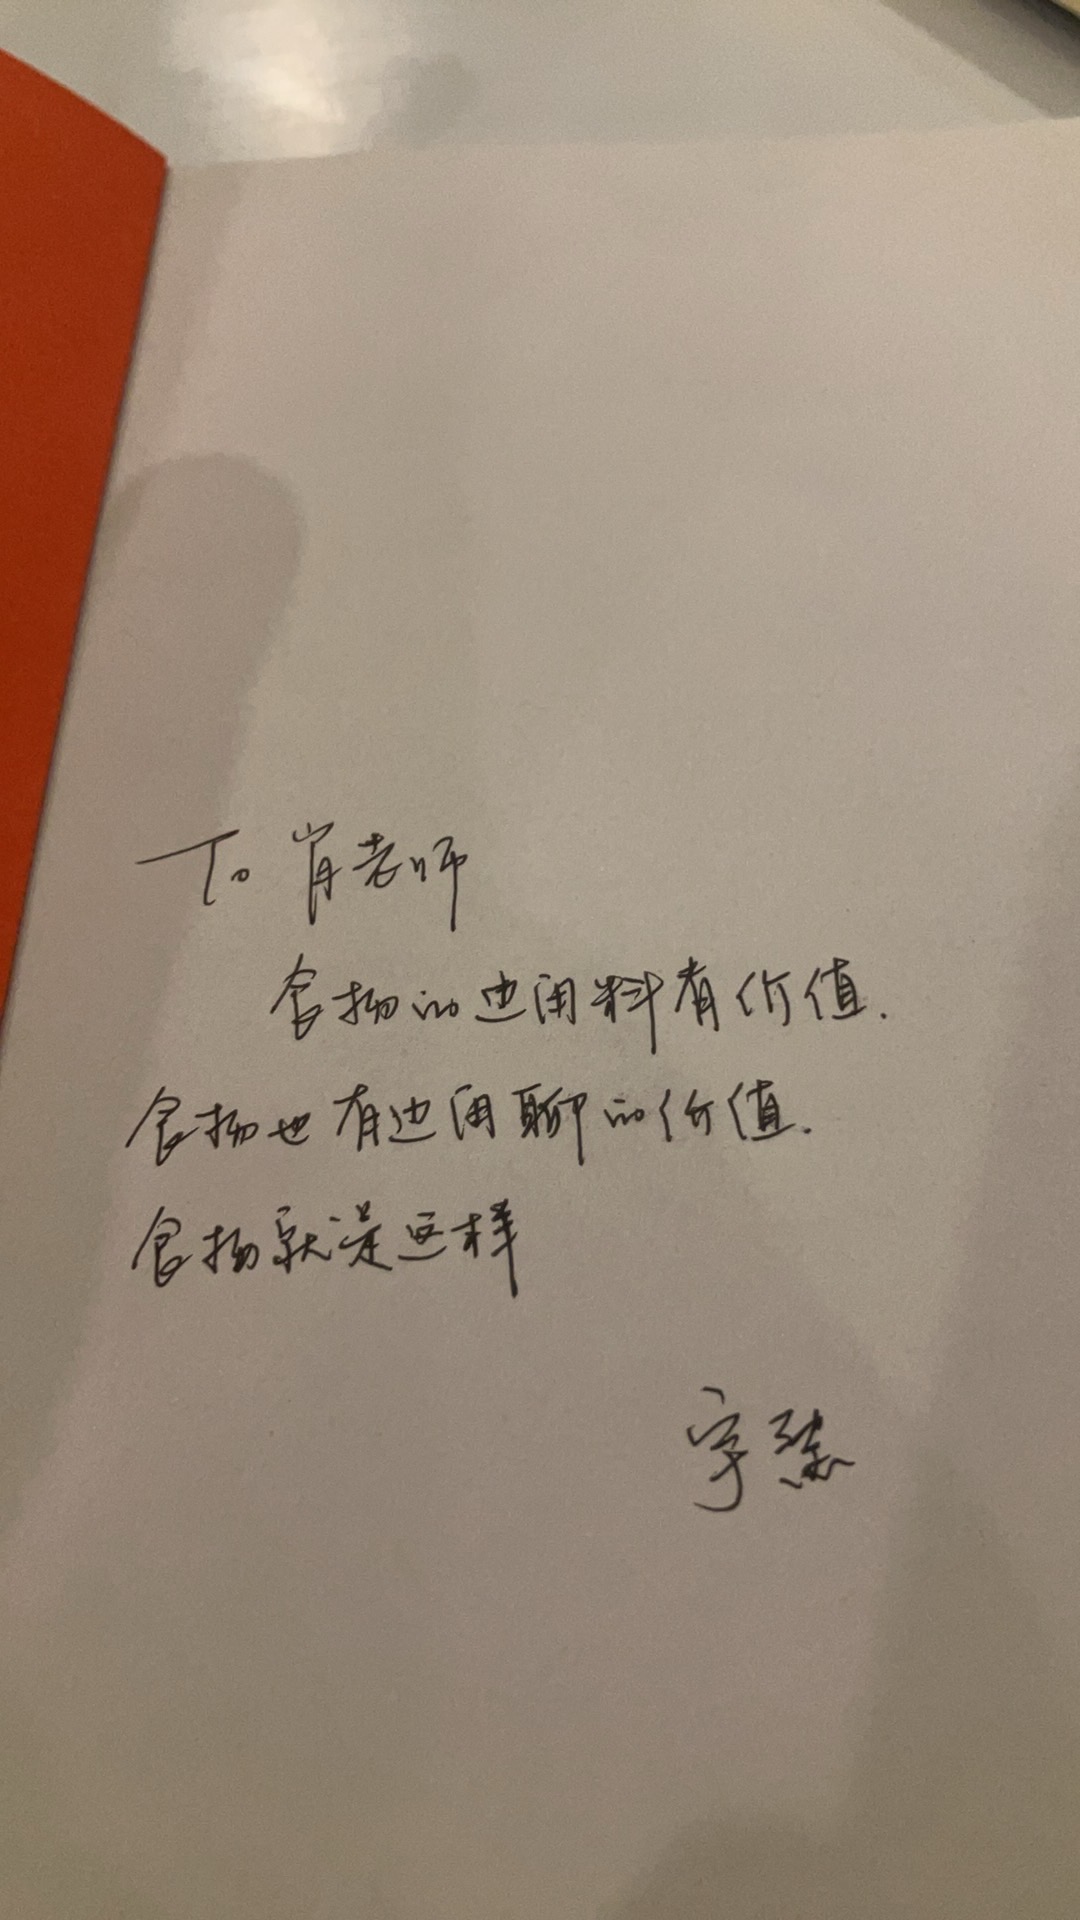 To 肖老师
食物的边角料有价值.
食物也有边角聊的价值.
食物就是这样